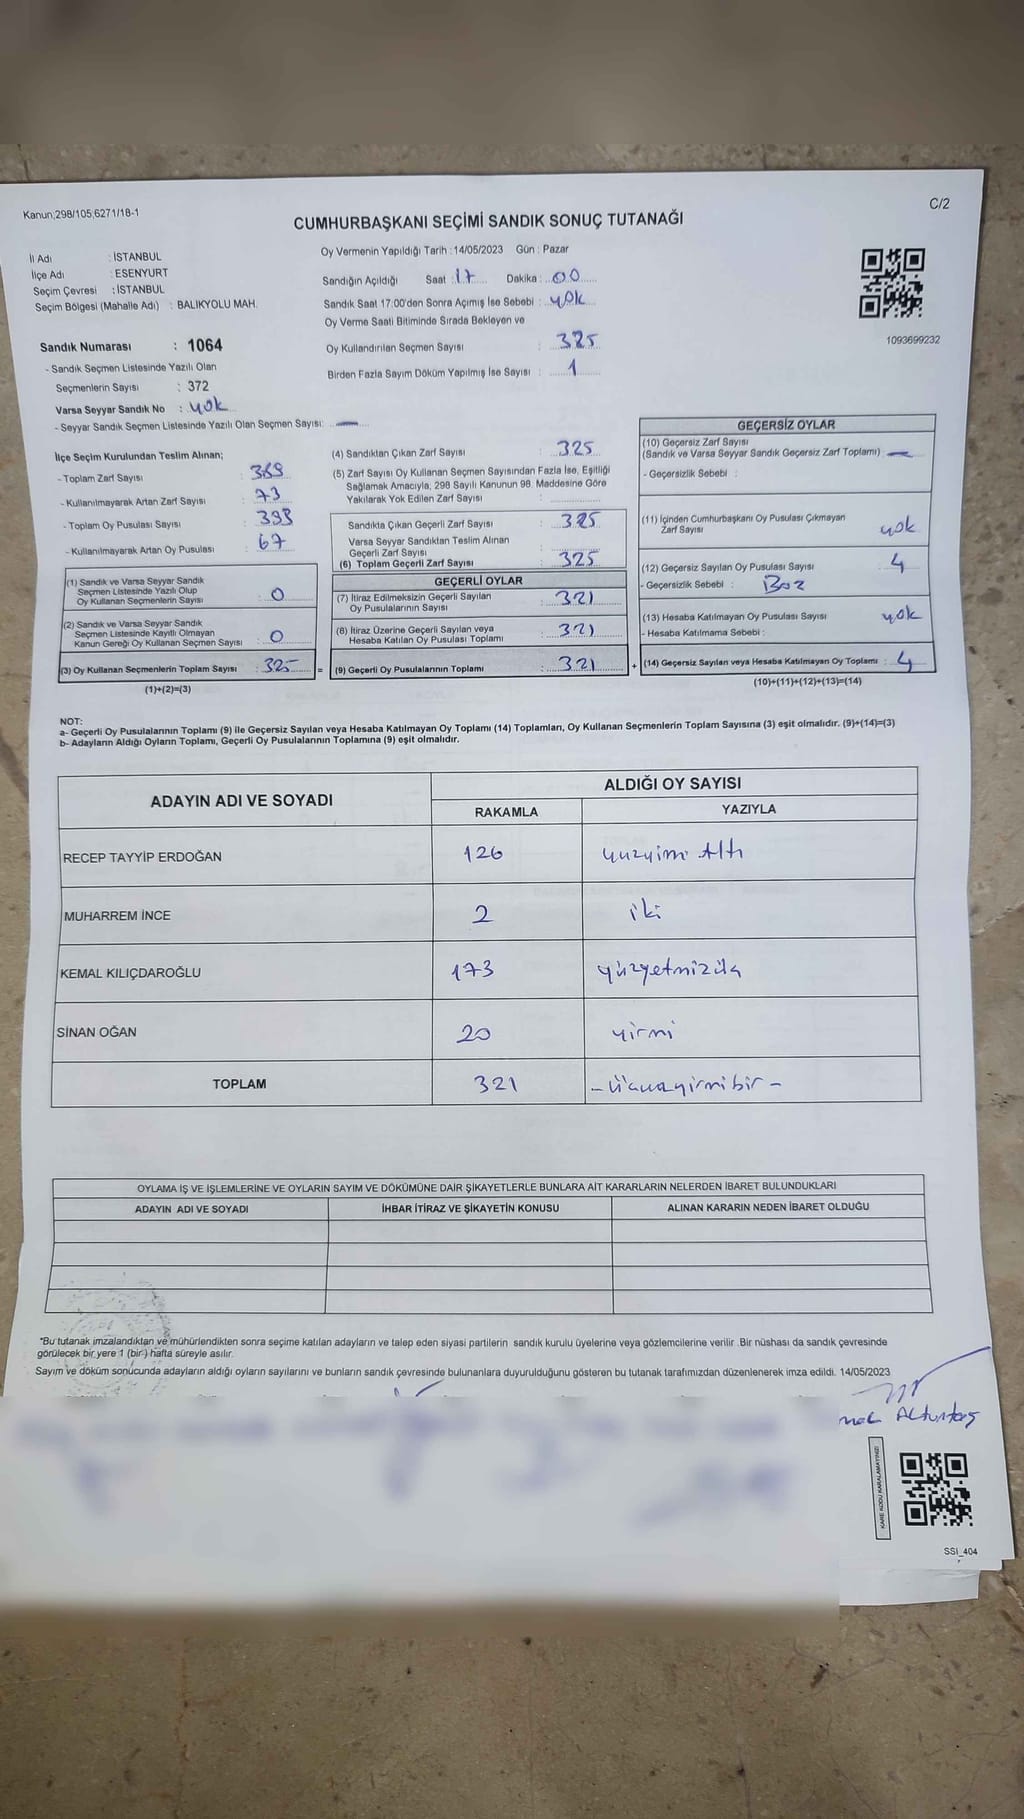 Kanun;298/105;6271/18-1
C/2
CUMHURBAŞKANI SEÇİMİ SANDIK SONUÇ TUTANAĞI
İl Adı : İSTANBUL
İlçe Adı : ESENYURT
Seçim Çevresi : İSTANBUL
Seçim Bölgesi (Mahalle Adı) : BALIKYOLU MAH.
Sandık Numarası : 1064
- Sandık Seçmen Listesinde Yazılı Olan
Seçmenlerin Sayısı : 372
Varsa Seyyar Sandık No : yok
- Seyyar Sandık Seçmen Listesinde Yazılı Olan Seçmen Sayısı: —
Oy Vermenin Yapıldığı Tarih : 14/05/2023 Gün : Pazar
Sandığın Açıldığı Saat : 17 Dakika : 00
Sandık Saat 17:00'den Sonra Açımış İse Sebebi : yok
Oy Verme Saati Bitiminde Sırada Bekleyen ve
Oy Kullandırılan Seçmen Sayısı : 325
Birden Fazla Sayım Döküm Yapılmış İse Sayısı : 1
1093699232
İlçe Seçim Kurulundan Teslim Alınan;
- Toplam Zarf Sayısı :
- Kullanılmayarak Artan Zarf Sayısı : 73
- Toplam Oy Pusulası Sayısı :
- Kullanılmayarak Artan Oy Pusulası : 67
(1) Sandık ve Varsa Seyyar Sandık
Seçmen Listesinde Yazılı Olup
Oy Kullanan Seçmenlerin Sayısı : 0
(2) Sandık ve Varsa Seyyar Sandık
Seçmen Listesinde Kayıtlı Olmayan
Kanun Gereği Oy Kullanan Seçmen Sayısı : 0
(3) Oy Kullanan Seçmenlerin Toplam Sayısı : 325 =
(1)+(2)=(3)
(4) Sandıktan Çıkan Zarf Sayısı : 325
(5) Zarf Sayısı Oy Kullanan Seçmen Sayısından Fazla İse, Eşitliği
Sağlamak Amacıyla; 298 Sayılı Kanunun 98. Maddesine Göre
Yakılarak Yok Edilen Zarf Sayısı :
Sandıkta Çıkan Geçerli Zarf Sayısı : 325
Varsa Seyyar Sandıktan Teslim Alınan
Geçerli Zarf Sayısı :
(6) Toplam Geçerli Zarf Sayısı : 325
GEÇERLİ OYLAR
(7) İtiraz Edilmeksizin Geçerli Sayılan
Oy Pusulalarının Sayısı : 321
(8) İtiraz Üzerine Geçerli Sayılan veya
Hesaba Katılan Oy Pusulası Toplamı : 321
(9) Geçerli Oy Pusulalarının Toplamı : 321 +
GEÇERSİZ OYLAR
(10) Geçersiz Zarf Sayısı
(Sandık ve Varsa Seyyar Sandık Geçersiz Zarf Toplamı) : —
- Geçersizlik Sebebi :
(11) İçinden Cumhurbaşkanı Oy Pusulası Çıkmayan
Zarf Sayısı yok
(12) Geçersiz Sayılan Oy Pusulası Sayısı 4
- Geçersizlik Sebebi : Boz
(13) Hesaba Katılmayan Oy Pusulası Sayısı yok
- Hesaba Katılmama Sebebi :
(14) Geçersiz Sayılan veya Hesaba Katılmayan Oy Toplamı : 4
(10)+(11)+(12)+(13)=(14)
NOT:
a- Geçerli Oy Pusulalarının Toplamı (9) ile Geçersiz Sayılan veya Hesaba Katılmayan Oy Toplamı (14) Toplamları, Oy Kullanan Seçmenlerin Toplam Sayısına (3) eşit olmalıdır. (9)+(14)=(3)
b- Adayların Aldığı Oyların Toplamı, Geçerli Oy Pusulalarının Toplamına (9) eşit olmalıdır.
ADAYIN ADI VE SOYADI
ALDIĞI OY SAYISI
RAKAMLA YAZIYLA
RECEP TAYYİP ERDOĞAN 126 yüzyimi Altı
MUHARREM İNCE 2 iki
KEMAL KILIÇDAROĞLU 173
SİNAN OĞAN 20 yirmi
TOPLAM 321
OYLAMA İŞ VE İŞLEMLERİNE VE OYLARIN SAYIM VE DÖKÜMÜNE DAİR ŞİKAYETLERLE BUNLARA AİT KARARLARIN NELERDEN İBARET BULUNDUKLARI
ADAYIN ADI VE SOYADI İHBAR İTİRAZ VE ŞİKAYETİN KONUSU ALINAN KARARIN NEDEN İBARET OLDUĞU
*Bu tutanak imzalandıktan ve mühürlendikten sonra seçime katılan adayların ve talep eden siyasi partilerin sandık kurulu üyelerine veya gözlemcilerine verilir .Bir nüshası da sandık çevresinde
görülecek bir yere 1 (bir ) hafta süreyle asılır.
Sayım ve döküm sonucunda adayların aldığı oyların sayılarını ve bunların sandık çevresinde bulunanlara duyurulduğunu gösteren bu tutanak tarafımızdan düzenlenerek imza edildi. 14/05/2023
Altuntaş
KARE KODU KARALAMAYINIZ!
SSİ_404